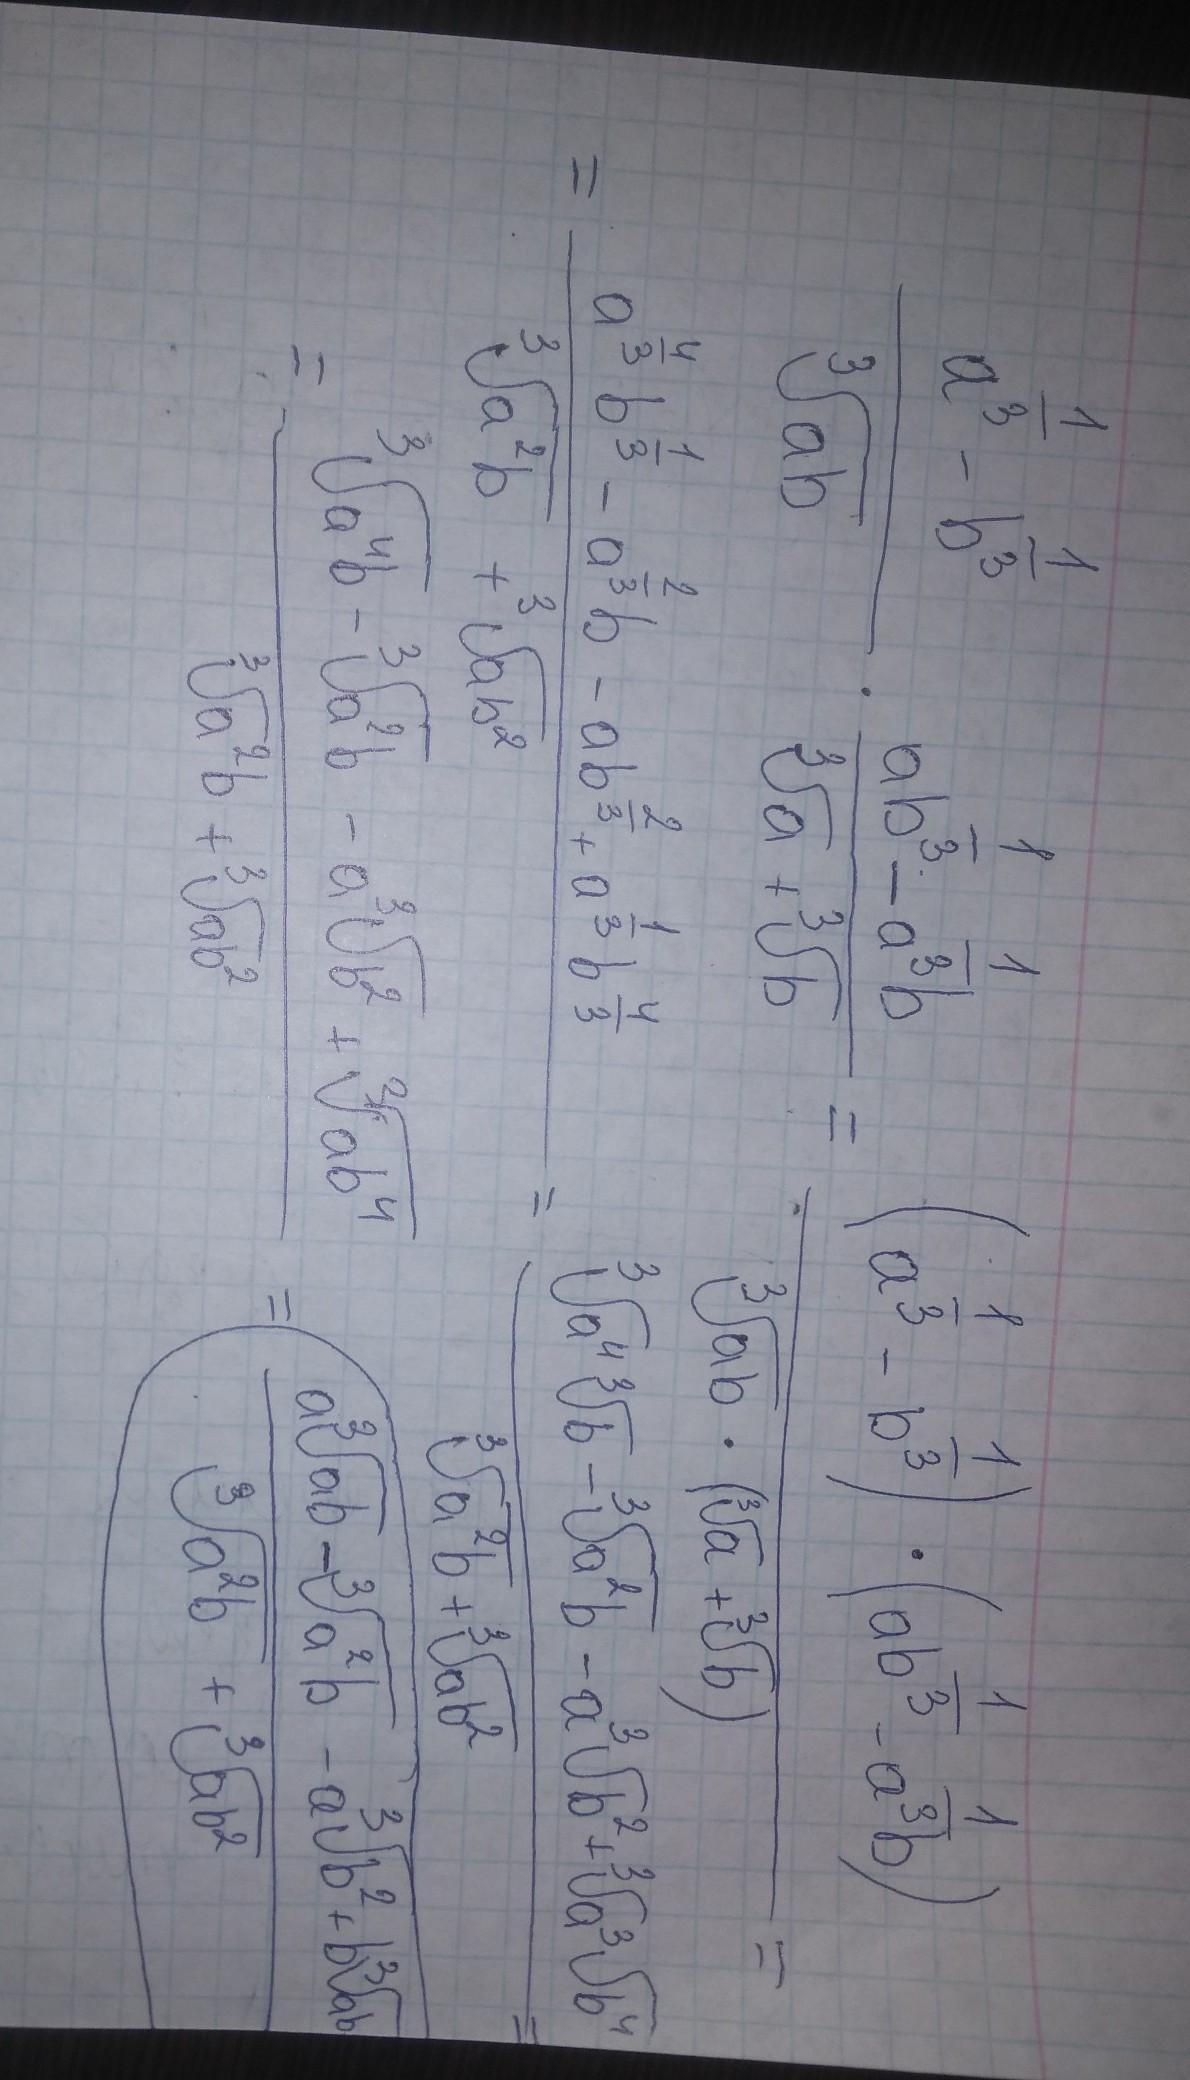 (a^(1/3) - b^(1/3))/∛(ab) · (ab^(1/3) - a^(1/3)b)/(∛a + ∛b) = ((a^(1/3) - b^(1/3)) · (ab^(1/3) - a^(1/3)b))/(∛(ab) · (∛a + ∛b)) =
= (a^(4/3)b^(1/3) - a^(2/3)b - ab^(2/3) + a^(1/3)b^(4/3))/(∛(a²b) + ∛(ab²)) = (∛a⁴ ∛b - ∛(a²b) - a∛b² + ∛a ∛b⁴)/(∛(a²b) + ∛(ab²)) =
= (∛(a⁴b) - ∛(a²b) - a∛b² + ∛(ab⁴))/(∛(a²b) + ∛(ab²)) = (a∛(ab) - ∛(a²b) - a∛b² + b∛(ab))/(∛(a²b) + ∛(ab²))